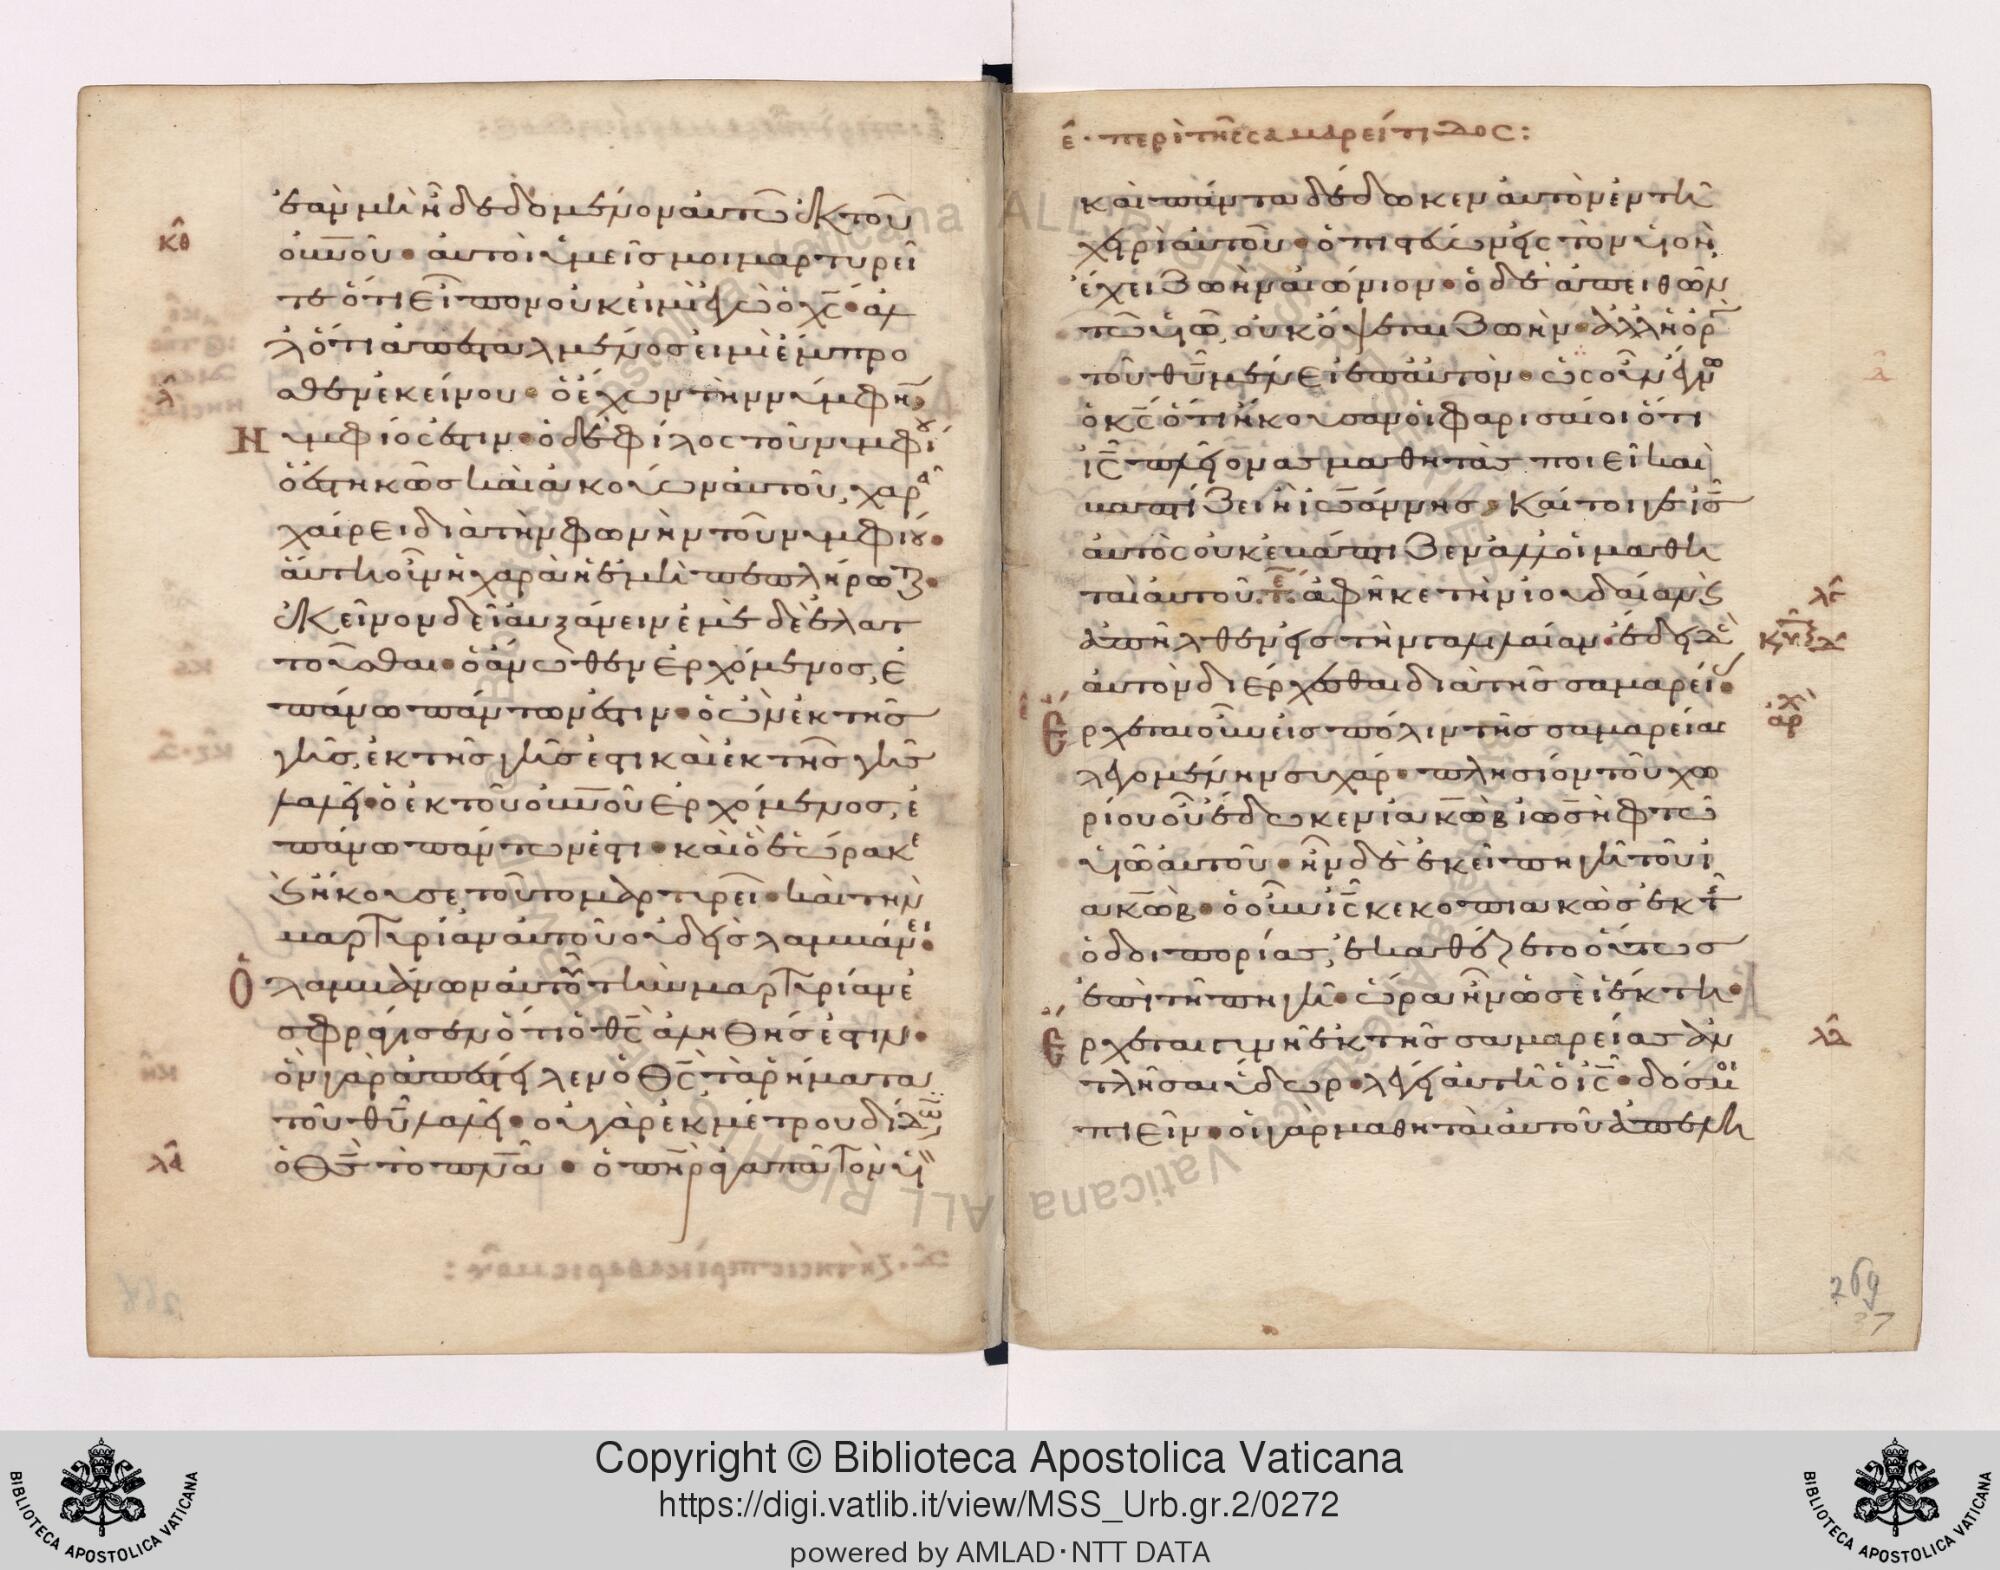 ἐὰν μὴ ἦ δεδομένον αὐτῶ ἐκ τοῦ
κθ
οὐνοῦ· αὐτοὶ ὑμεῖς μοι μαρτυρεῖ
τε ὅτι εἶπον οὐκ εἰμὶ ἐγὼ ὁ χς· ἀλ
λ' ὅτι ἀπεσταλμένος εἰμὶ ἔμπρο
λ
σθεν ἐκείνου· ὁ ἔχων τὴν νύμφην
νυμφίος ἐστιν· ὁ δὲ φίλος τοῦ νυμφίου
ὁ ἑστηκὼς καὶ ἀκούων αὐτοῦ, χαρᾶ
χαίρει διὰ τὴν φωνὴν τοῦ νυμφίου·
αὕτη οὖν ἡ χαρὰ ἡ ἐμὴ πεπλήρωται·
ἐκεῖνον δεῖ αὐξάνειν ἐμὲ δὲ ἐλατ
τοῦσθαι· ὁ ἄνωθεν ἐρχόμενος, ἐ
πάνω πάντων ἐστιν· ὁ ὢν ἐκ τῆς
γῆς, ἐκ τῆς γῆς ἐστι καὶ ἐκ τῆς γῆς
λαλεῖ· ὁ ἐκ τοῦ οὐνοῦ ἐρχόμενος, ἐ
πάνω πάντων ἐστι· καὶ ὃ ἑώρακε
καὶ ἤκουσε τοῦτο μαρτυρεῖ· καὶ τὴν
μαρτυρίαν αὐτοῦ οὐδεὶς λαμβάνει·
Ὁ λαμβάνων αὐτοῦ τὴν μαρτυρίαν ἐ
σφράγισεν ὅτι ὁ θς ἀληθής ἐστιν·
ὃν γὰρ ἀπέστειλεν ὁ θς τὰ ῥήματα
τοῦ θυ λαλεῖ· οὐ γὰρ ἐκ μέτρου δίδωσιν
λα
ὁ θς τὸ πνα· ὁ πηρ ἀγαπᾶ τὸν υν
ε· περὶ τῆς σαμαρείτιδος:
καὶ πάντα δέδωκεν αὐτὸν ἐν τῆ
χειρὶ αὐτοῦ· ὁ πιστεύων εἰς τὸν υἱὸν,
ἔχει ζωὴν αἰώνιον· ὁ δὲ ἀπειθῶν
τῶ υἱῶ, οὐκ ὄψεται ζωὴν· ἀλλ' ἡ ὀργὴ
τοῦ θυ μένει ἐπ' αὐτόν· ὡς οὖν ἔγνω
ὁ κς ὅτι ἤκουσαν οἱ φαρισαῖοι ὅτι
ις πλείονας μαθητὰς ποιεῖ καὶ
βαπτίζει ἢ ἰωάννης· καίτοιγε ις
αὐτὸς οὐκ ἐβάπτιζεν ἀλλ' οἱ μαθη
ταὶ αὐτοῦ· ἀφῆκε τὴν ἰουδαίαν καὶ
ἀπῆλθεν εἰς τὴν γαλιλαίαν· ἔδει δὲ
αὐτὸν διέρχεσθαι διὰ τῆς σαμαρείας·
ἀρχ
Ἔρχεται οὖν εἰς πόλιν τῆς σαμαρείας
λεγομένην συχάρ· πλησίον τοῦ χω
ρίου οὗ ἔδωκεν ἰακὼβ ἰωσὴφ τῶ
υἱῶ αὐτοῦ· ἦν δὲ ἐκεῖ πηγὴ τοῦ ἰ
ακὼβ· ὁ οὖν ις κεκοπιακὼς ἐκ τῆς
ὁδοιπορίας, ἐκαθέζετο οὕτως
ἐπὶ τῆ πηγῆ· ὥρα ἦν ὡσεὶ ἕκτη·
λα
Ἔρχεται γυνὴ ἐκ τῆς σαμαρείας ἀν
τλῆσαι ὕδωρ· λέγει αὐτῆ ὁ ις· δός μοι
πιεῖν· οἱ γὰρ μαθηταὶ αὐτοῦ ἀπελη
269
37
Copyright © Biblioteca Apostolica Vaticana
https://digi.vatlib.it/view/MSS_Urb.gr.2/0272
powered by AMLAD·NTT DATA
BIBLIOTECA APOSTOLICA VATICANA
BIBLIOTECA APOSTOLICA VATICANA